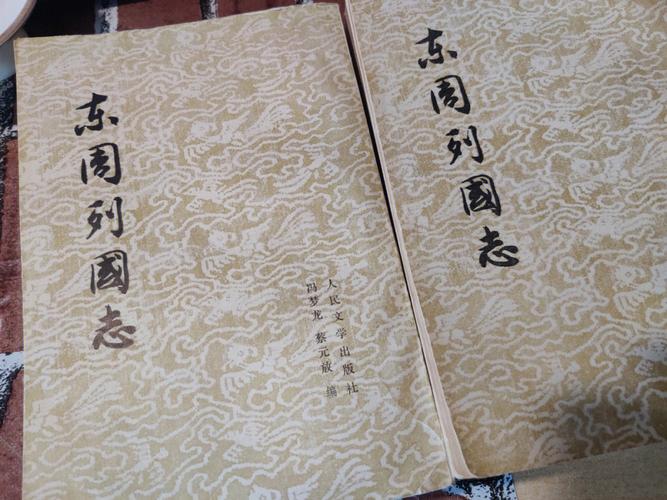 东周列國志
冯梦龙 蔡元放 编
人民文学出版社
东周列國志